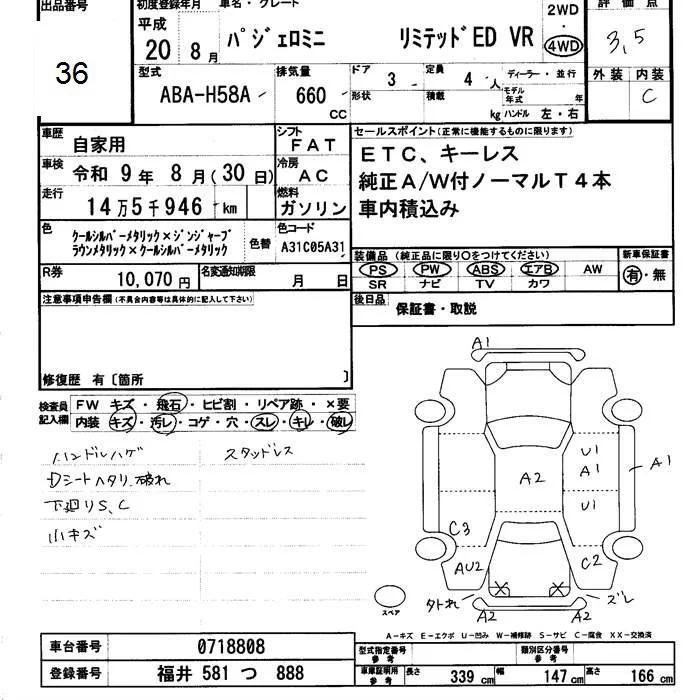 出品番号
36
初度登録年月
車名・グレード
平成
20 8 月
パジェロミニ リミテッドED VR
2WD
・
4WD
評価点
3,5
型式
ABA-H58A
排気量
660
CC
ドア
3
形状
定員
4 人
積載
kg
ディーラー・並行
モデル年式
年
ハンドル 左・右
外装 内装
C
車歴
自家用
シフト
FAT
車検
令和 9 年 8 月 (30 日)
冷房
AC
走行
14 万 5 千 946 km
燃料
ガソリン
色
クールシルバーメタリック×ジンジャーブ
ラウンメタリック×クールシルバーメタリック
色替
色コード
A31C05A31
R券
10,070 円
名変通知期限
月 日
セールスポイント(正常に機能するものに限ります)
ETC、キーレス
純正A/W付ノーマルT4本
車内積込み
装備品 (純正品に限り○をつけてください)
PS PW ABS エアB AW
SR ナビ TV カワ
新車保証書
有・無
後日品
保証書・取説
注意事項申告欄(不具合内容等は具体的に記入して下さい)
修復歴 有〔箇所 〕
検査員
記入欄
FW キズ・飛石・ヒビ割・リペア跡・×要
内装 キズ・汚レ・コゲ・穴・スレ・キレ・破レ
ハンドルハゲ
スタッドレス
Dシートヘタリ、破れ
下廻りS、C
小キズ
A1
U1
A1
A1
A2
U1
C3
AU2
C2
外れ
ズレ
A2
A2
スペア
A-キズ E-エクボ U-凹み W-補修跡 S-サビ C-腐食 XX-交換済
車台番号
0718808
登録番号
福井 581 つ 888
型式指定番号
参考
類別区分番号
参考
車庫証明用
参考
長さ
339 cm
幅
147 cm
高さ
166 cm